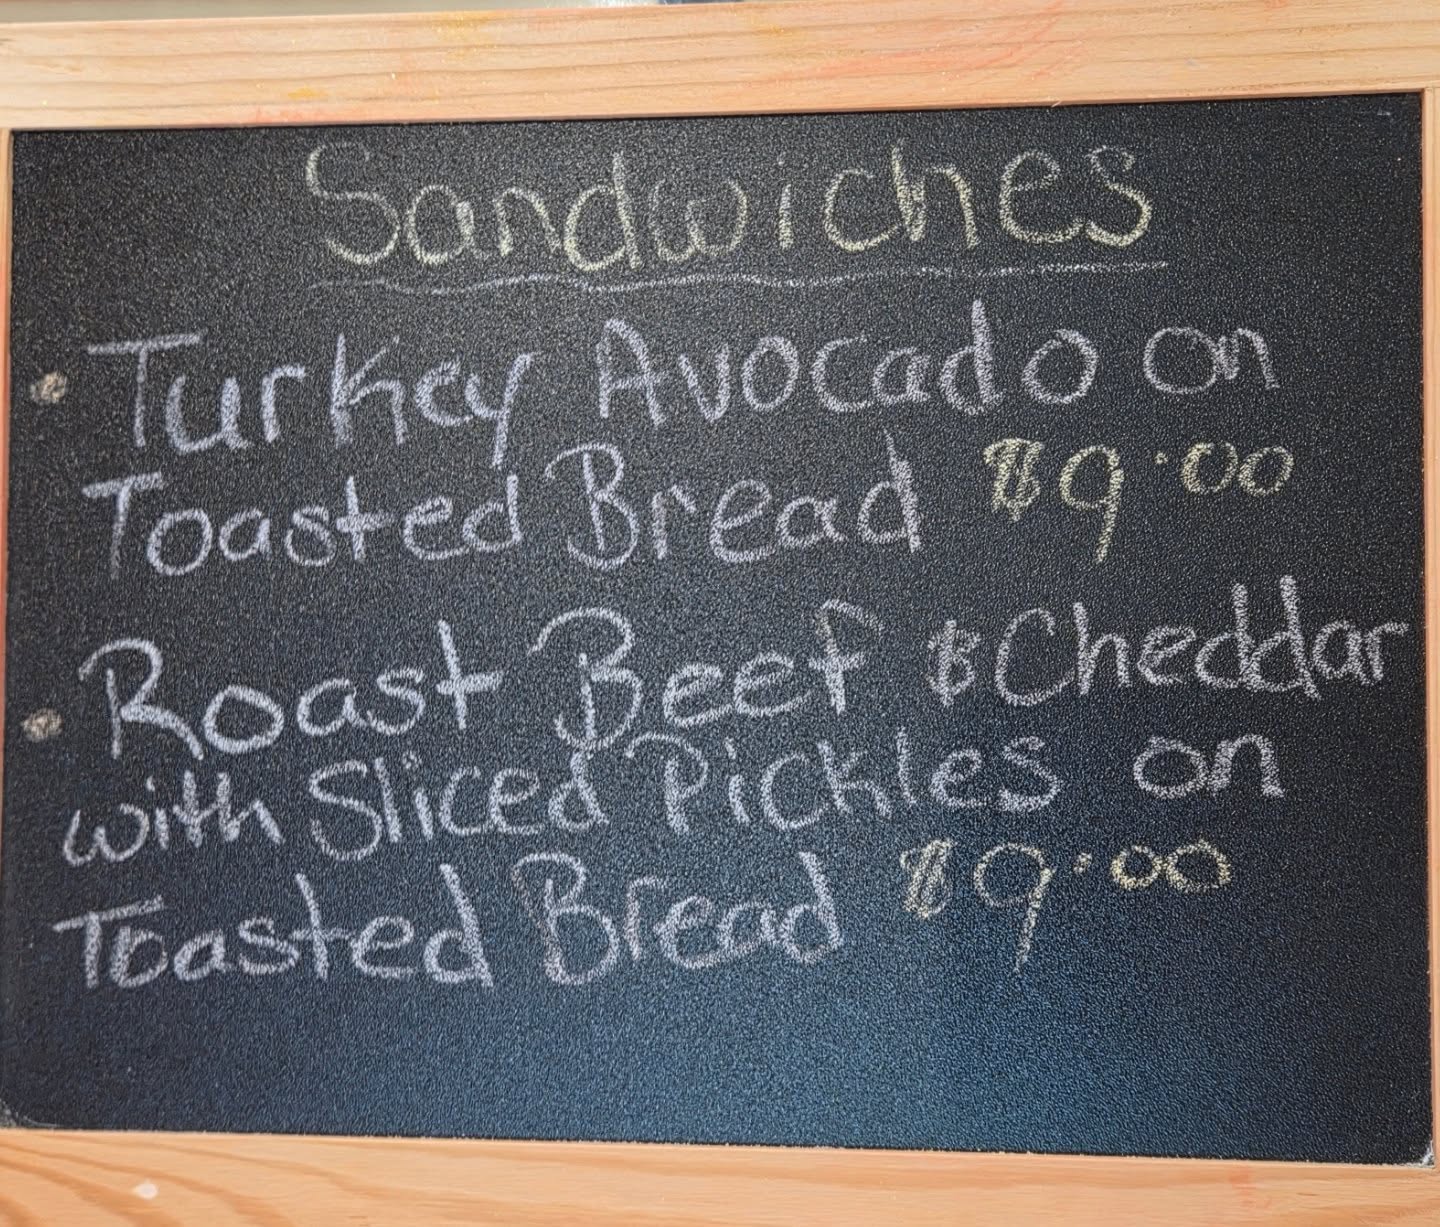 Sandwiches
• Turkey Avocado on
Toasted Bread $9.00
• Roast Beef & Cheddar
with Sliced Pickles on
Toasted Bread $9.00